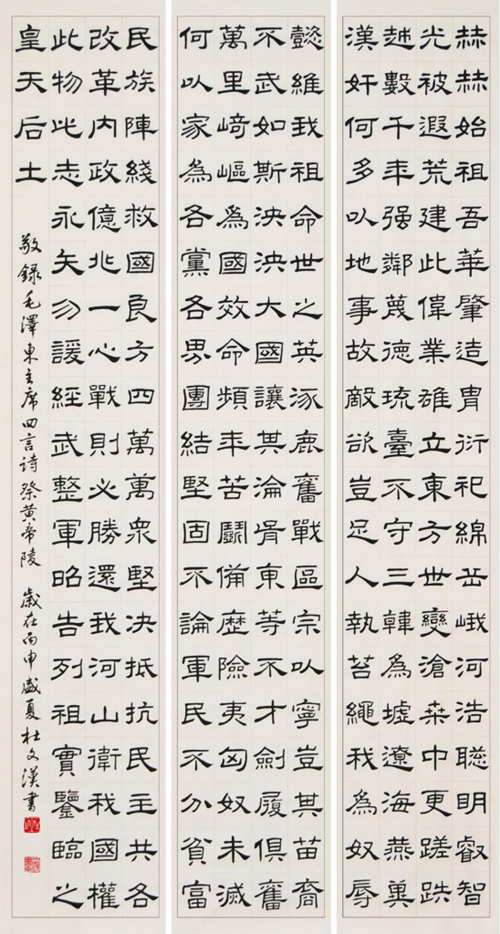 赫赫始祖吾華肇造胄衍祀綿岳峨河浩聰明叡智
光被遐荒建此偉業雄立東方世變滄桑中更蹉跌
越數千年强鄰蔑德琉臺不守三韓為墟遼海燕冀
漢奸何多以地事故敵欲豈足人執笞繩我為奴辱
懿維我祖命世之英涿鹿奮戰區宗以寧豈其苗裔
不武如斯泱泱大國讓其淪胥東等不才劍履俱奮
萬里崎嶇為國效命頻年苦鬭備歷險夷匈奴未滅
何以家為各黨各界團結堅固不論軍民不分貧富
民族陣綫救國良方四萬萬衆堅决抵抗民主共各
改革內政億兆一心戰則必勝還我河山衛我國權
此物此志永矢勿諼經武整軍昭告列祖實鑒臨之
皇天后土
敬錄毛澤東主席四言詩祭黃帝陵 歲在丙申盛夏杜文漢書